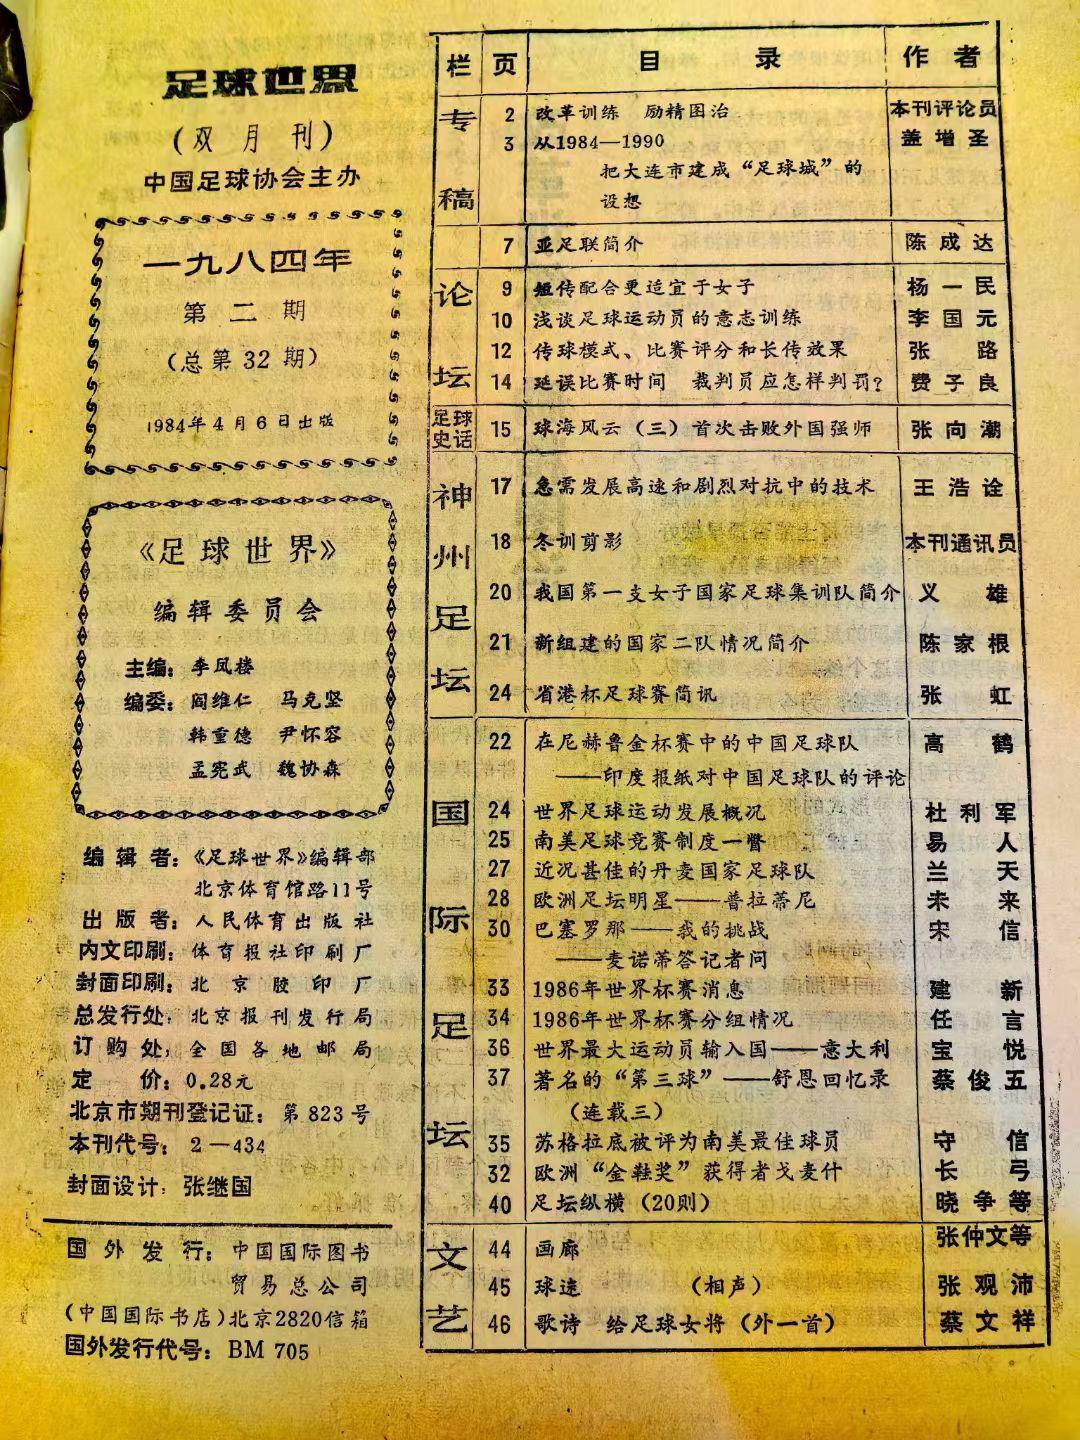 足球世界
（双月刊）
中国足球协会主办
一九八四年
第二期
（总第32期）
1984年4月6日出版
《足球世界》
编辑委员会
主编：李凤楼
编委：阎维仁 马克坚
韩重德 尹怀容
孟宪武 魏协森
编辑者：《足球世界》编辑部
北京体育馆路11号
出版者：人民体育出版社
内文印刷：体育报社印刷厂
封面印刷：北京胶印厂
总发行处：北京报刊发行局
订购处：全国各地邮局
定价：0.28元
北京市期刊登记证：第823号
本刊代号：2—434
封面设计：张继国
国外发行：中国国际图书
贸易总公司
（中国国际书店）北京2820信箱
国外发行代号：BM 705
栏 页 目录 作者
专稿
2 改革训练 励精图治 本刊评论员
3 从1984—1990 盖增圣
把大连市建成“足球城”的
设想
7 亚足联简介 陈成达
论坛
9 短传配合更适宜于女子 杨一民
10 浅谈足球运动员的意志训练 李国元
12 传球模式、比赛评分和长传效果 张路
14 延误比赛时间 裁判员应怎样判罚？ 费子良
足球
史话
15 球海风云（三）首次击败外国强师 张向潮
神州足坛
17 急需发展高速和剧烈对抗中的技术 王浩诠
18 冬训剪影 本刊通讯员
20 我国第一支女子国家足球集训队简介 义雄
21 新组建的国家二队情况简介 陈家根
24 省港杯足球赛简讯 张虹
国际足坛
22 在尼赫鲁金杯赛中的中国足球队 高鹤
——印度报纸对中国足球队的评论
24 世界足球运动发展概况 杜利军
25 南美足球竞赛制度一瞥 易人
27 近况甚佳的丹麦国家足球队 兰天
28 欧洲足坛明星——普拉蒂尼 未来
30 巴塞罗那——我的挑战 宋信
——麦诺蒂答记者问
33 1986年世界杯赛消息 建新
34 1986年世界杯赛分组情况 任言
36 世界最大运动员输入国——意大利 宝悦
37 著名的“第三球”——舒恩回忆录 蔡俊五
（连载三）
35 苏格拉底被评为南美最佳球员 守信
32 欧洲“金鞋奖”获得者戈麦什 长弓
40 足坛纵横（20则） 晓争等
文艺
44 画廊 张仲文等
45 球迷 （相声） 张观沛
46 歌诗 给足球女将（外一首） 蔡文祥